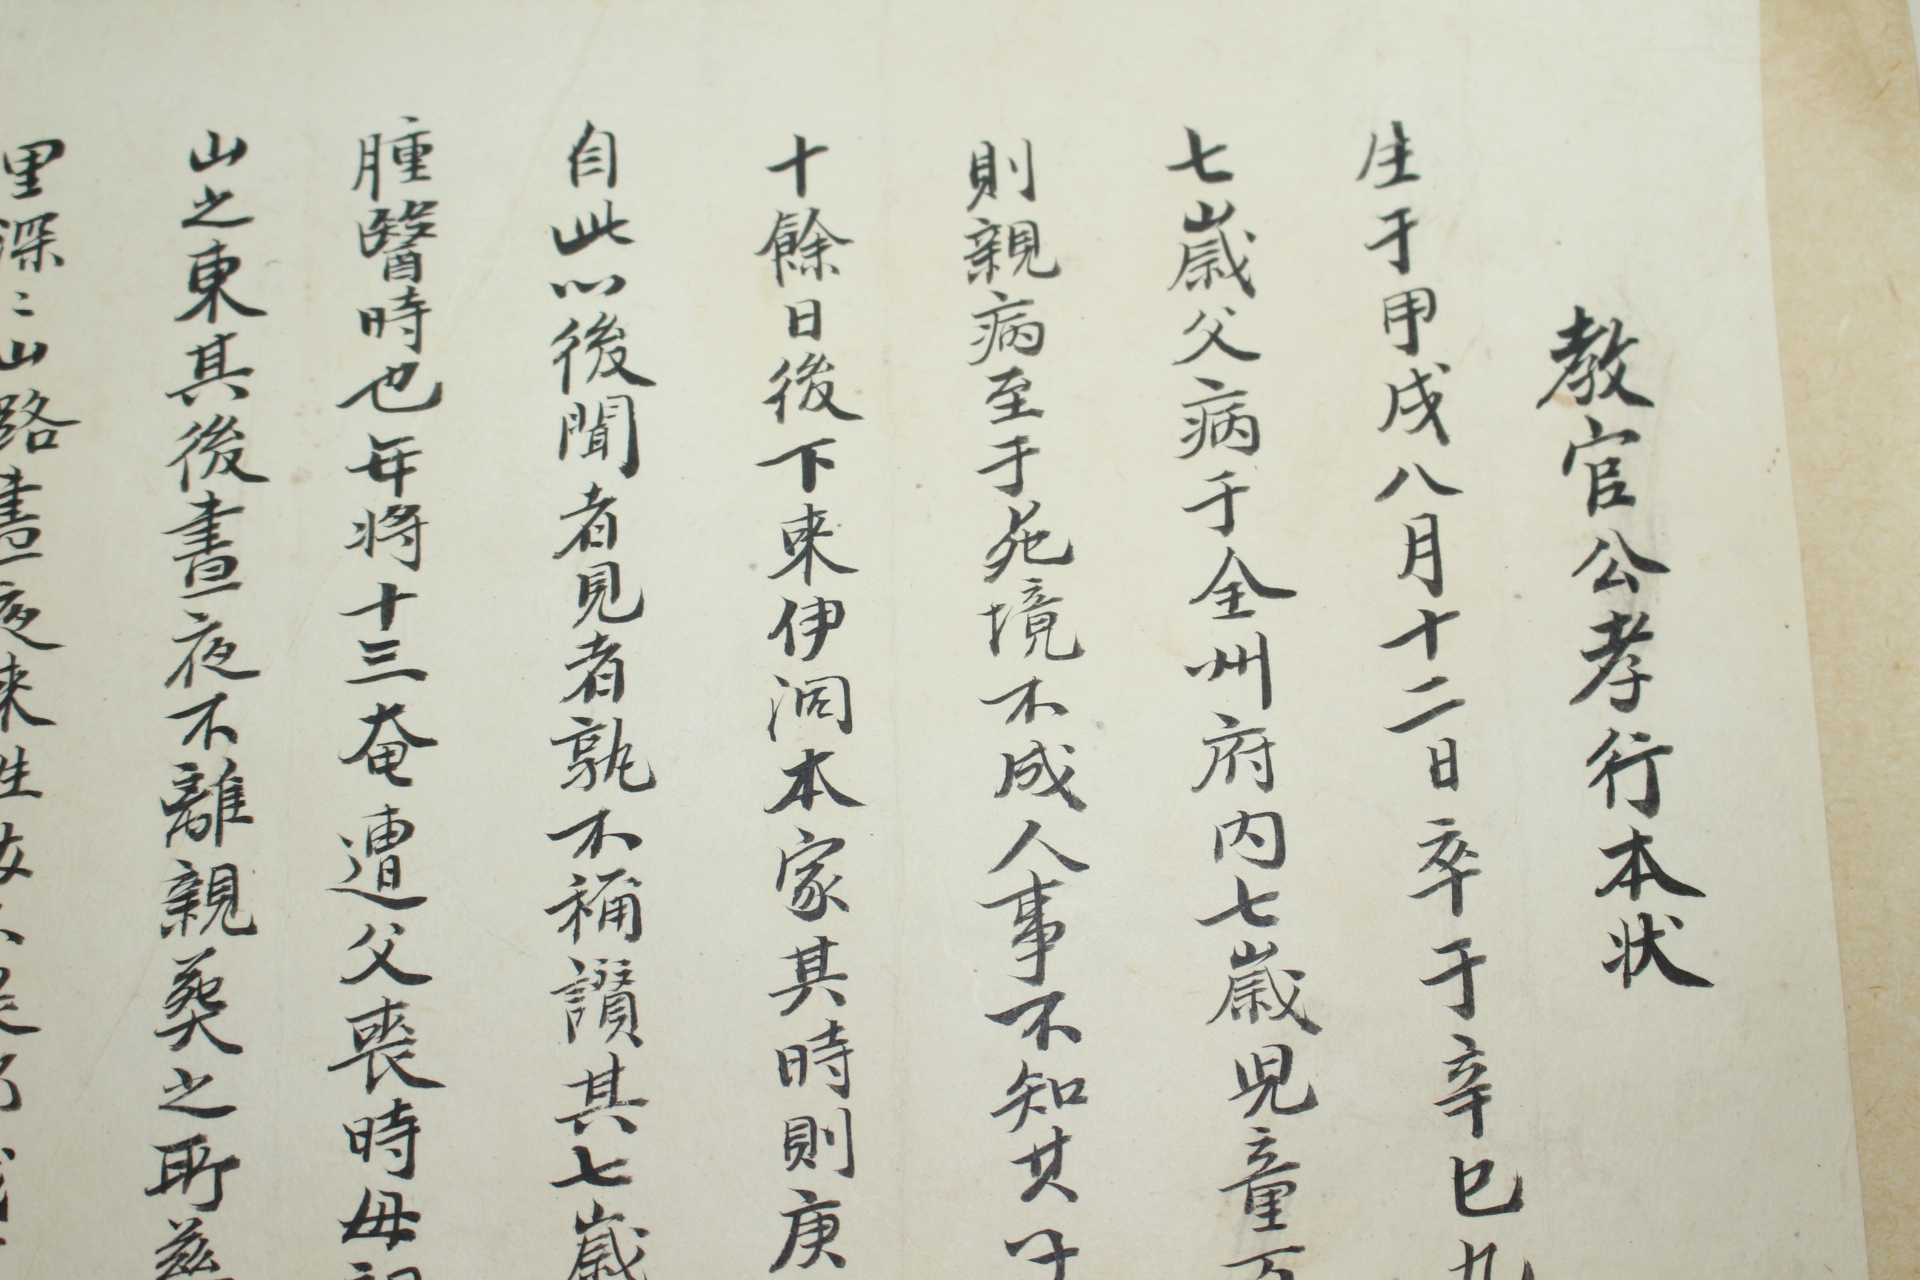 教官公孝行本狀
生于甲戌八月十二日卒于辛巳九
七歲父病于全州府內七歲児童万
則親病至于死境不成人事不知其子
十餘日後下来伊洞本家其時則庚
自此以後聞者見者孰不稱讚其七歲
腫醫時也年將十三奄遭父喪時母親
山之東其後晝夜不離親葬之所茲
里深〻山路晝夜来